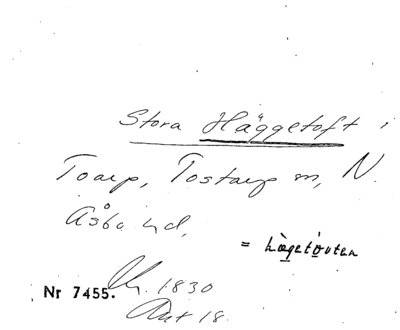 Stora Häggetoft i
Toarp, Tostarp sn, N.
Åsbo hd,
= hägetòuten
Nr 7455. Chr. 1830
Ant 18.